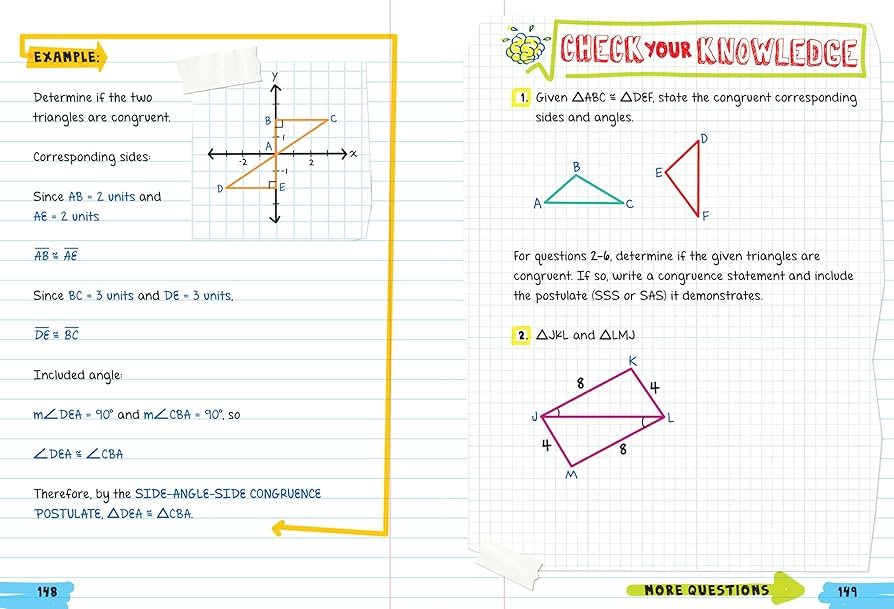 EXAMPLE:
Determine if the two
triangles are congruent.
Corresponding sides:
Since AB = 2 units and
AE = 2 units
AB ≅ AE
Since BC = 3 units and DE = 3 units,
DE ≅ BC
Included angle:
m∠DEA = 90° and m∠CBA = 90°, so
∠DEA ≅ ∠CBA
Therefore, by the SIDE-ANGLE-SIDE CONGRUENCE
POSTULATE, △DEA ≅ △CBA.
y
B C
1
A x
-2 2
-1
D E
148
CHECK YOUR KNOWLEDGE
1. Given △ABC ≅ △DEF, state the congruent corresponding
sides and angles.
D
B
E
A C
F
For questions 2-6, determine if the given triangles are
congruent. If so, write a congruence statement and include
the postulate (SSS or SAS) it demonstrates.
2. △JKL and △LMJ
K
8 4
J L
4 8
M
MORE QUESTIONS
149